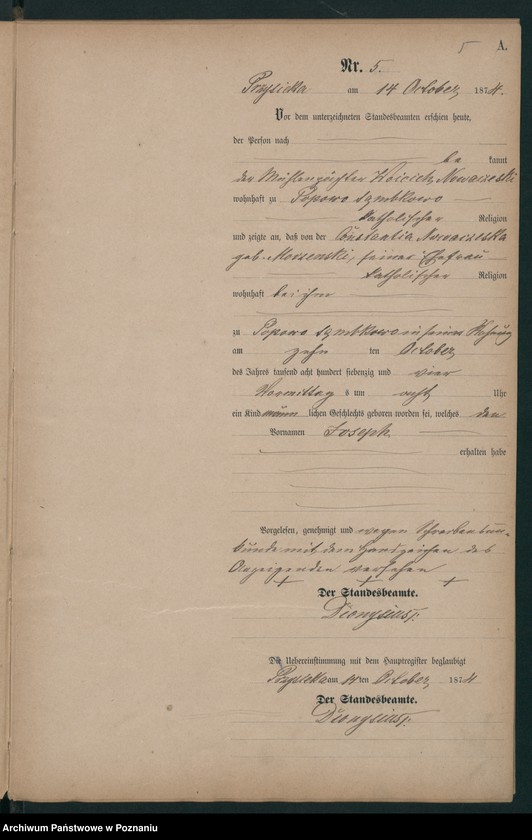 5 A.
Nr. 5.
Przysieka am 14 October 1874.
Vor dem unterzeichneten Standesbeamten erschien heute,
der Person nach
be kannt
der Nowaczeski
wohnhaft zu Popowo
katholischer Religion
und zeigte an, daß von der Constantia Nowaczeska
geb. seiner Ehefrau
katholischer Religion
wohnhaft bei ihm
zu Popowo in seiner Wohnung
am zehn ten October
des Jahres tausend acht hundert siebenzig und vier
Vormittag s um acht Uhr
ein Kind männ lichen Geschlechts geboren worden sei, welches den
Vornamen Joseph
erhalten habe
Vorgelesen, genehmigt und wegen Schreibensun-
kunde mit dem Handzeichen des
Anzeigenden versehen
+ + +
Der Standesbeamte.
Dionysius
Die Uebereinstimmung mit dem Hauptregister beglaubigt
Przysieka am 14ten October 1874
Der Standesbeamte.
Dionysius
Archiwum Państwowe w Poznaniu